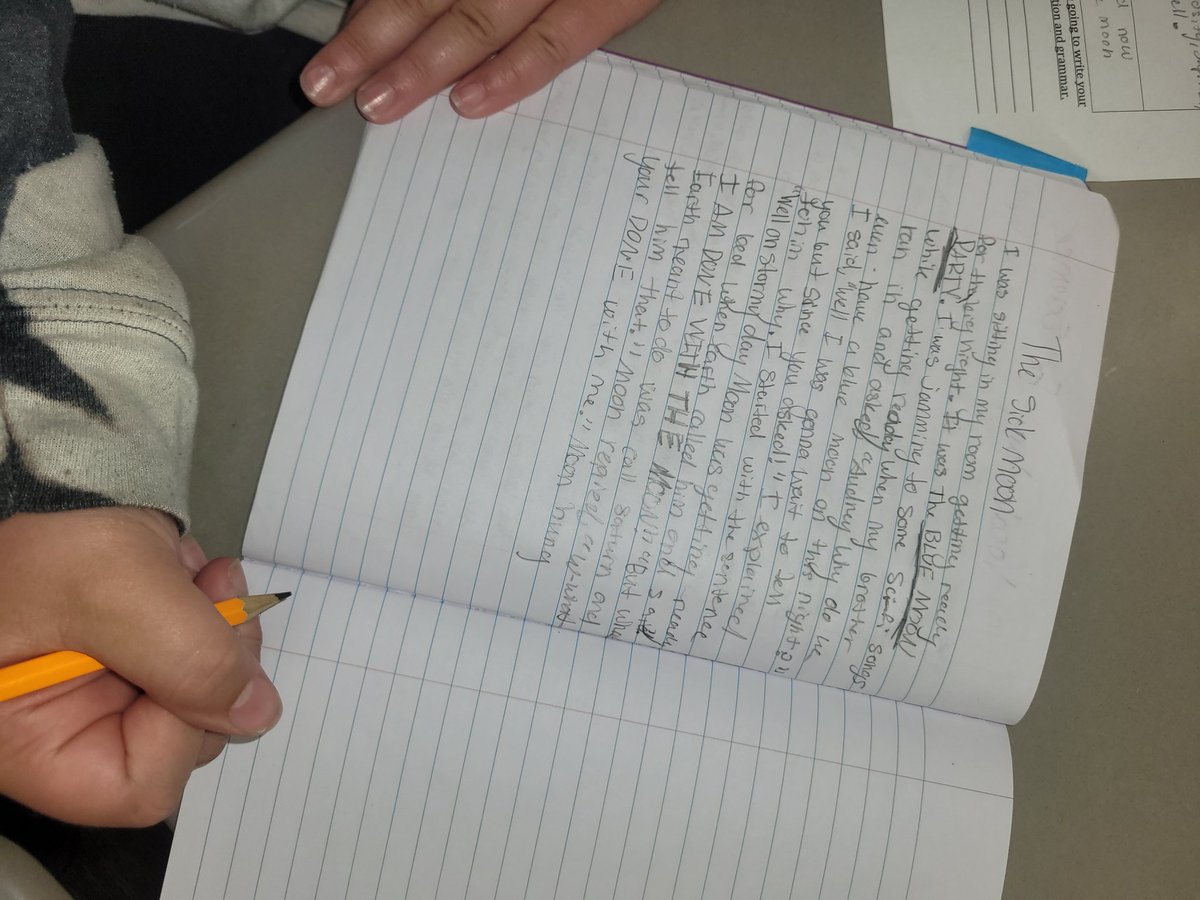 The Sick Moon
I was sitting in my room getting ready
for the big night. It was The BLUE MOON
PARTY. I was jamming to some Scifi songs
while getting ready when my brother
ran in and asked, "Audrey why do we
even have a blue moon on this night?"
I said, "Well I was gonna wait to tell
you but since you asked!" I explained
to him why. I started with the sentence
"Well on stormy day Moon was getting ready
for bed when Earth called him and said
I AM DONE WITH THE MOON" But what
Earth meant to do was call saturn and
tell him that." Moon replied, "w-what
your DONE with me." Moon hung
going to write your
tion and grammar.
now
moon
ell.